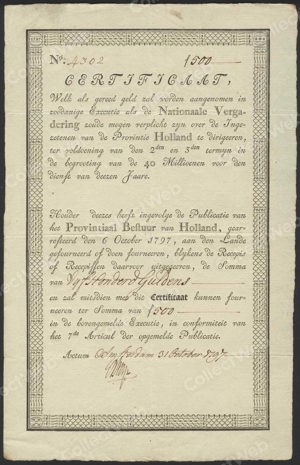 No. 4302 1500
CERTIFICAAT,
Welk als gereed geld zal worden aangenomen in
zoodanige Executie als de Nationaale Verga-
dering zoude mogen verplicht zyn over de Inge-
zetenen van de Provintie Holland te dirigeeren,
ter voldoening van den 2den en 3den termyn in
de begrooting van de 40 Millioenen voor den
dienst van deezen Jaare.
Houder deezes heeft ingevolge de Publicatie van
het Provinciaal Bestuur van Holland, gear-
resteerd den 6 October 1797, aan den Lande
gefourneerd of doen fourneeren, blykens de Recepis
of Recepissen daarvoor uitgegeeven, de Somma
van Vyftienhonderd Guldens
en zal mitsdien met dit Certificaat kunnen four-
neeren ter Somma van 1500
in de bovengemelde Executie, in conformiteit van
het 7de Articul der opgemelde Publicatie.
Actum 31 October 1797